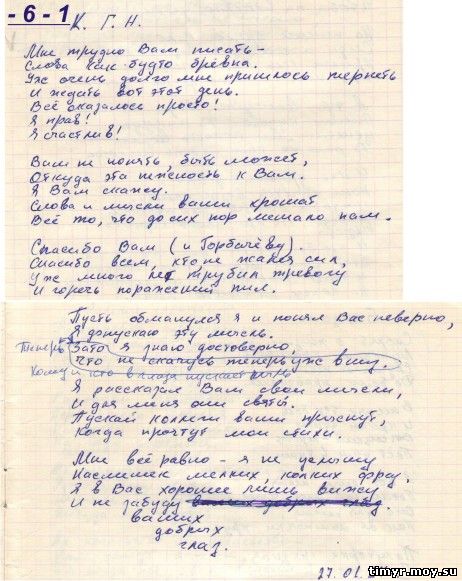 - 6 - 1
К. Г. Н.
Мне трудно Вам писать -
Слова как будто брёвна.
Уж очень долго мне пришлось терпеть
И ждать вот этот день.
Всё оказалось просто!
Я прав!
Я счастлив!
Вам не понять, быть может,
Откуда эта нежность к Вам.
Я Вам скажу.
Слова и мысли ваши крошат
Всё то, что до сих пор мешало нам.
Спасибо Вам (и Горбачёву).
Спасибо всем, кто не жалея сил,
Уж много лет трубил тревогу
И горечь поражений пил.
Пусть обманулся я и понял Вас неверно,
Я допускаю эту мысль.
Теперь Зато я знаю достоверно,
Что не скачусь теперь уж вниз.
Кому и что в глаза пускает
Я рассказал Вам свои мысли,
И для меня они святы.
Пускай коллеги ваши прыснут,
Когда прочтут мои стихи.
Мне всё равно - я не услышу
Насмешек мелких, колких фраз,
Я в Вас хорошее лишь вижу
И не забуду ваших добрых глаз.
ваших
добрых
глаз.
27.01.
timyr.moy.su